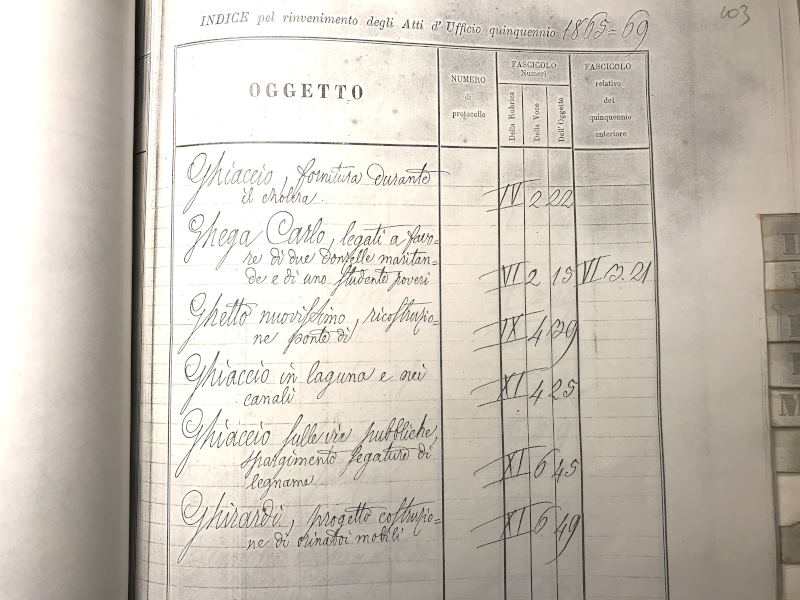 403
INDICE pel rinvenimento degli Atti d'Ufficio quinquennio 1865=69
OGGETTO
NUMERO
di
protocollo
FASCICOLO
Numeri
Della Rubrica
Della Voce
Dell'Oggetto
FASCICOLO
relativo
del
quinquennio
anteriore
Ghiaccio, fornitura durante
il cholera. IV 2 22
Ghega Carlo, legati a favo=
re di due donzelle maritan=
de e di uno studente poveri VI 2 15 VI 13.21
Ghetto nuovissimo, ricostruzio=
ne ponte di IX 4 39
Ghiaccio in laguna e nei
canali XI 4 25
Ghiaccio sulle vie pubbliche,
spargimento segature di
legname XI 6 45
Ghirardi, progetto costruzio=
ne di orinatoi mobili XI 6 49